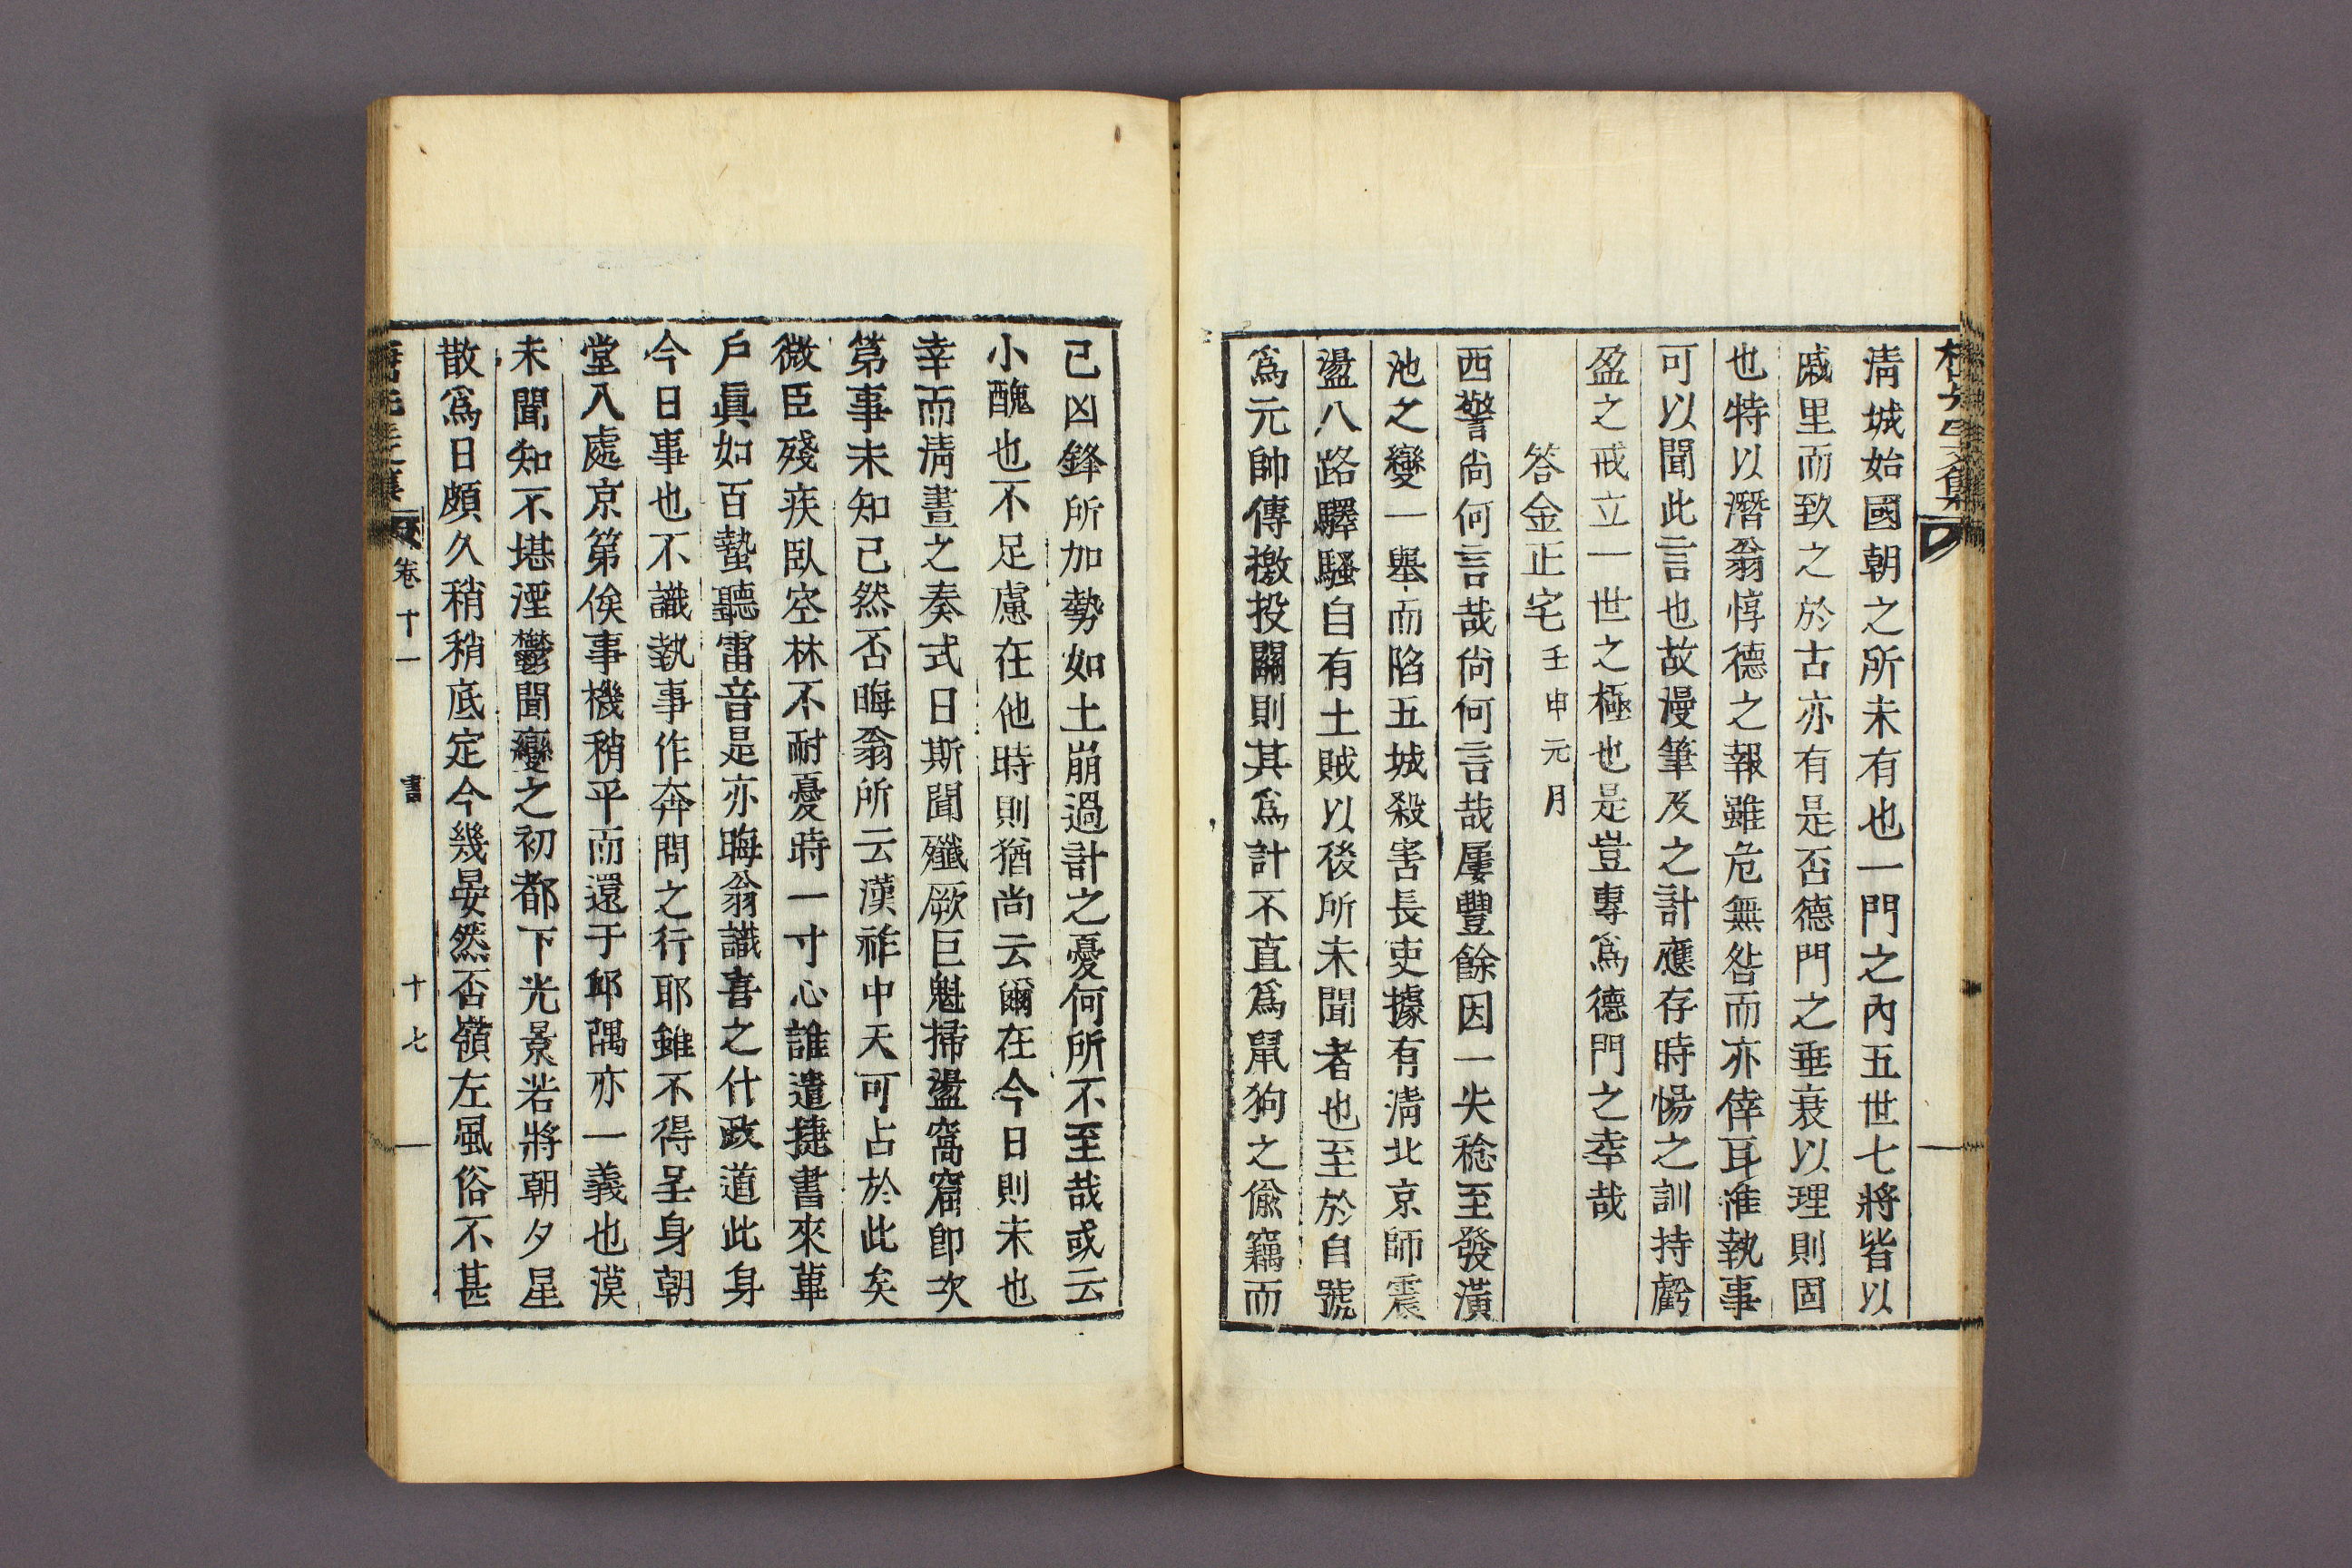 淸城始國朝之所未有也一門之內五世七將皆以
戚里而致之於古亦有是否德門之垂衰以理則固
也特以潛翁惇德之報雖危無咎而亦倖耳惟執事
可以聞此言也故漫筆及之計應存時惕之訓持虧
盈之戒立一世之極也是豈專爲德門之幸哉
答金正宅壬申元月
西警尙何言哉尙何言哉屢豐餘因一失稔至發潢
池之變一擧而陷五城殺害長吏據有淸北京師震
盪八路驛騷自有土賊以後所未聞者也至於自號
爲元帥傳檄投關則其爲計不直爲鼠狗之偸竊而
已凶鋒所加勢如土崩過計之憂何所不至哉或云
小醜也不足慮在他時則猶尙云爾在今日則未也
幸而淸晝之奏式日斯聞殲厥巨魁掃盪窩窟卽次
第事未知已然否晦翁所云漢祚中天可占於此矣
微臣殘疾臥空林不耐憂時一寸心誰遣捷書來蓽
戶眞如百蟄聽雷音是亦晦翁識喜之什政道此身
今日事也不識執事作奔問之行耶雖不得呈身朝
堂入處京第俟事機稍平而還于鄕隅亦一義也漠
未聞知不堪湮鬱聞變之初都下光景若將朝夕星
散爲日頗久稍稍底定今幾晏然否嶺左風俗不甚
卷十一 書 十七